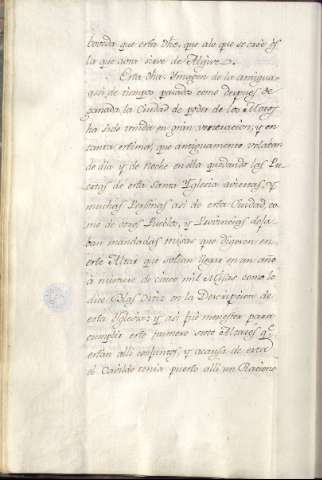 bobeda que esta dha, que alo que se cree es
la que aora sirve de Algive.
Esta dha Imagen de la antigue-
ad de tiempos pasados como despues de
ganada la Ciudad de poder de los Moros
ha sido tenida en gran veneracion, y en
tanta estima, que antiguamente velaban
de dia y de noche en ella quedando las Pu-
ertas de esta Santa Yglesia aviertas, y
muchas Personas asi de esta Ciudad, co-
mo de otros Pueblos, y Provincias deja-
ban mandadas misas que digeron en
este Altar que solian llegar en un año
à numero de cinco mil Misas como lo
dice Blas Ortiz en la Descripcion de
esta Yglesia, y asi fuè menester para
cumplir este numero siete Altares q.e
estan alli conjuntos, y acausa de esta
el Cavildo tenia puesto alli un Racione